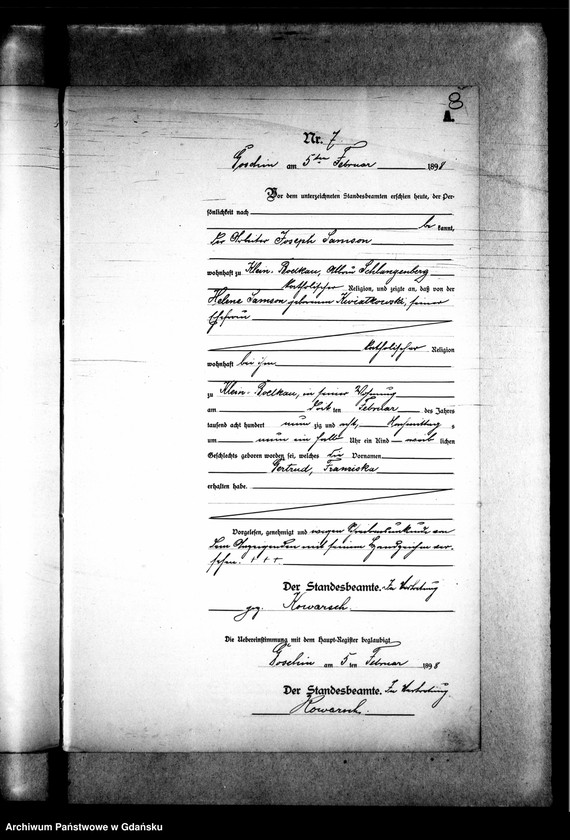 8
A.
Nr. 7
Goschin am 5ten Februar 1898
Vor dem unterzeichneten Standesbeamten erschien heute, der Per-
sönlichkeit nach
be kannt,
der Arbeiter Joseph Samson
wohnhaft zu Klein-Rodkau, Schlangenberg
katholischer Religion, und zeigte an, daß von der
Helene Samson geborenen Kwiatkowski, seiner
Ehefrau
katholischer Religion
wohnhaft bei ihm
zu Klein-Rodkau, in seiner Wohnung
am ten Februar des Jahres
tausend acht hundert neun zig und acht, Nachmittag s
um neun ein halb Uhr ein Kind weib lichen
Geschlechts geboren worden sei, welches die Vornamen
Gertrud, Franziska
erhalten habe.
Vorgelesen, genehmigt und wegen Schreibensunkunde von
dem Anzeigenden mit seinem Handzeichen ver-
sehen. + + +
Der Standesbeamte. In Vertretung
gez. Kowarsch.
Die Uebereinstimmung mit dem Haupt-Register beglaubigt
Goschin am 5 ten Februar 1898
Der Standesbeamte. In Vertretung.
Kowarsch.
Archiwum Państwowe w Gdańsku